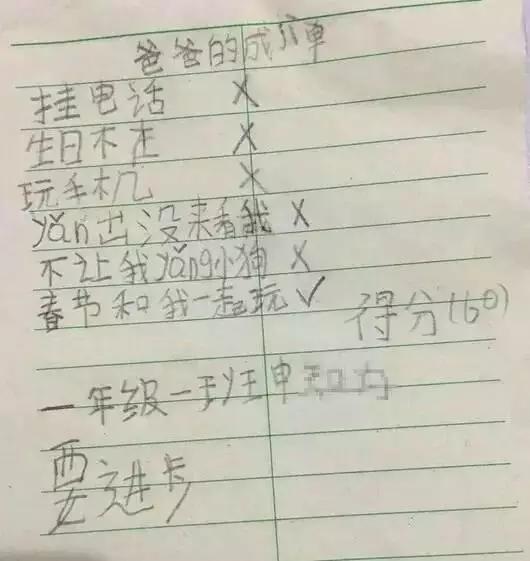 爸爸的成六单
挂电话 X
生日不在 X
玩手机 X
yǎn出没来看我 X
不让我yǎng小狗 X
春节和我一起玩 ✓
得分(60)
一年级一班申
要进卡